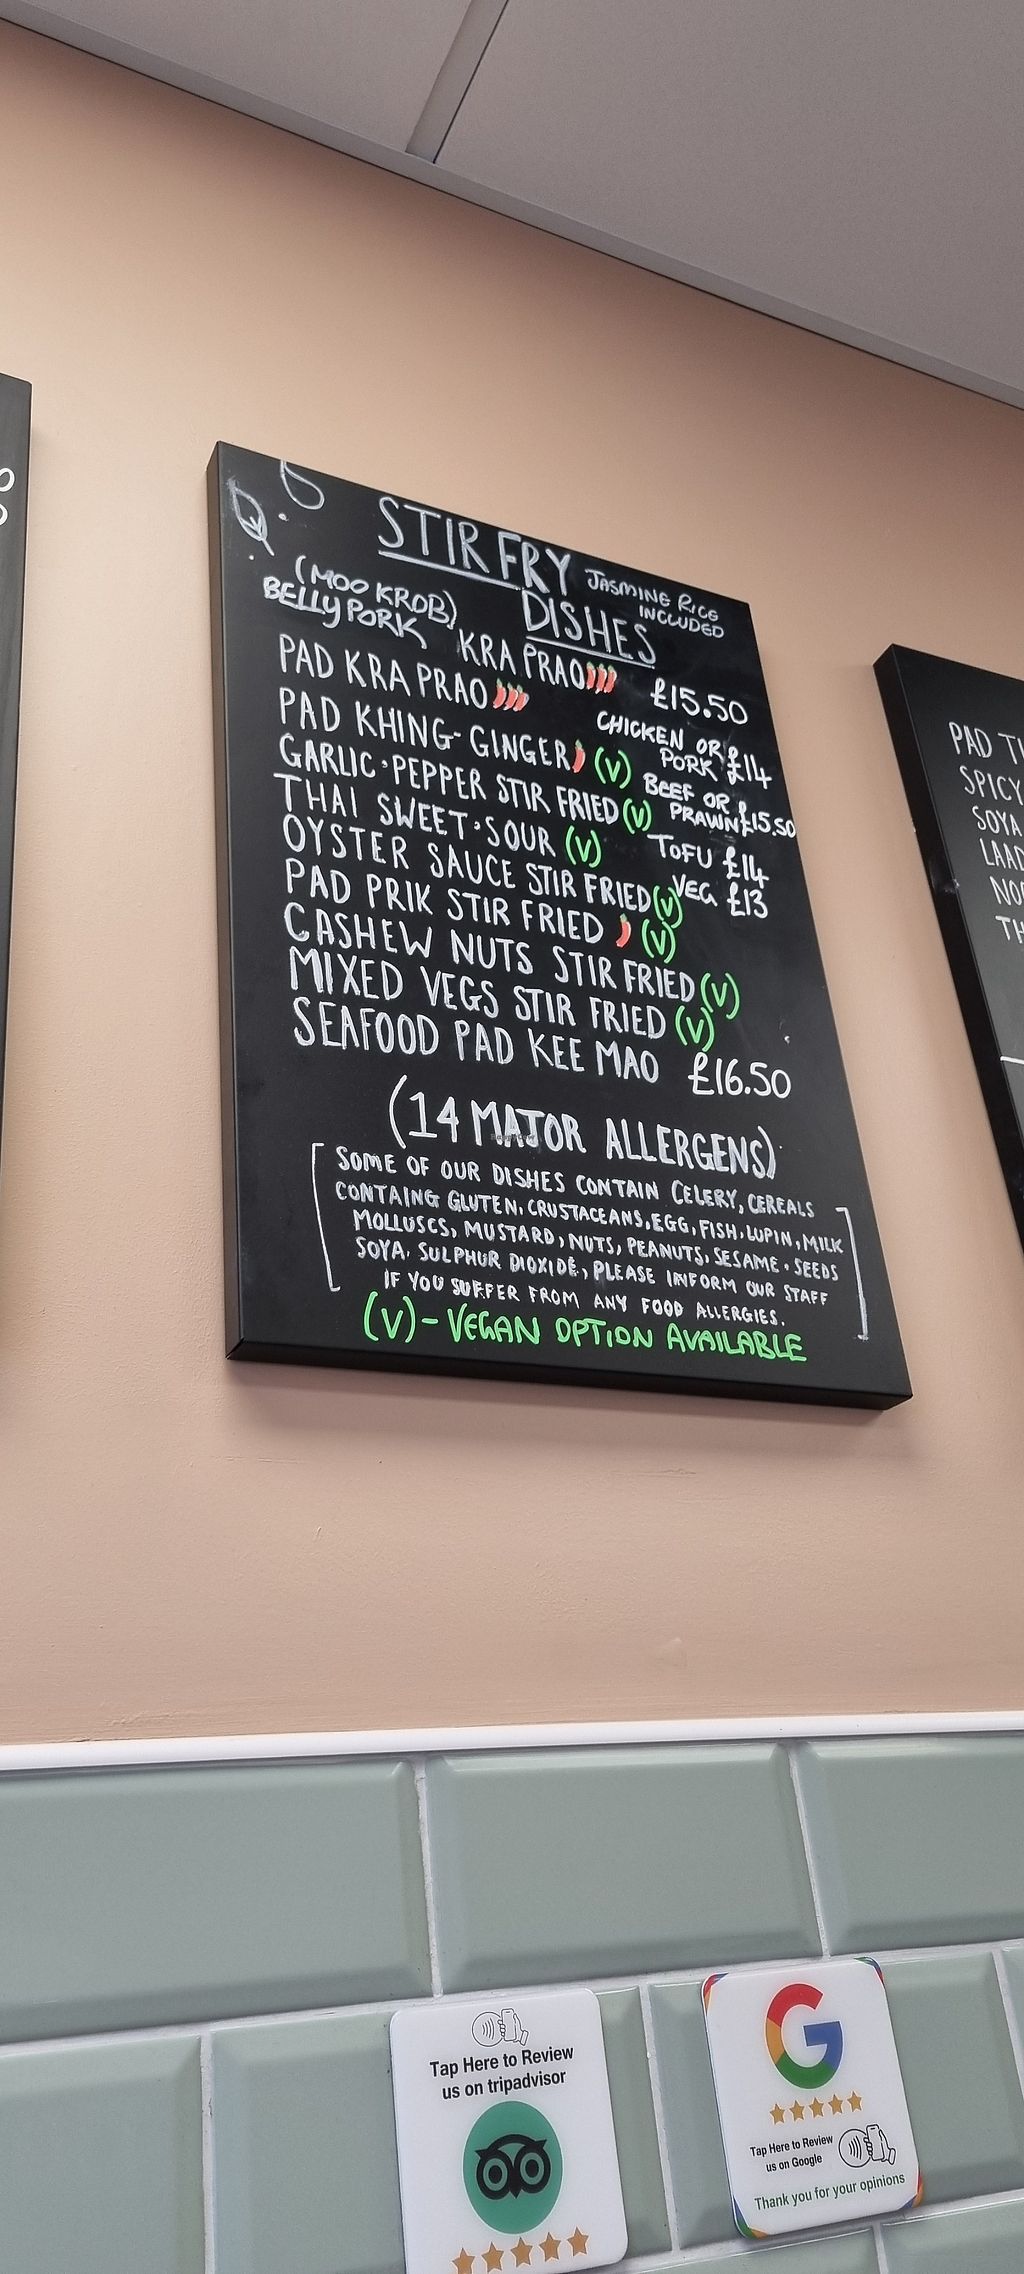 STIR FRY DISHES
JASMINE RICE INCLUDED
(MOO KROB)
BELLY PORK KRA PRAO £15.50
PAD KRA PRAO
PAD KHING-GINGER (V)
GARLIC·PEPPER STIR FRIED (V)
THAI SWEET·SOUR (V)
OYSTER SAUCE STIR FRIED (V)
PAD PRIK STIR FRIED (V)
CASHEW NUTS STIR FRIED (V)
MIXED VEGS STIR FRIED (V)
SEAFOOD PAD KEE MAO £16.50
CHICKEN OR PORK £14
BEEF OR PRAWN £15.50
TOFU £14
VEG £13
(14 MAJOR ALLERGENS)
SOME OF OUR DISHES CONTAIN CELERY, CEREALS
CONTAING GLUTEN, CRUSTACEANS, EGG, FISH, LUPIN, MILK
MOLLUSCS, MUSTARD, NUTS, PEANUTS, SESAME, SEEDS
SOYA, SULPHUR DIOXIDE, PLEASE INFORM OUR STAFF
IF YOU SUFFER FROM ANY FOOD ALLERGIES.
(V)-VEGAN OPTION AVAILABLE
PAD
SPICY
SOYA
Tap Here to Review
us on tripadvisor
G
Tap Here to Review
us on Google
Thank you for your opinions